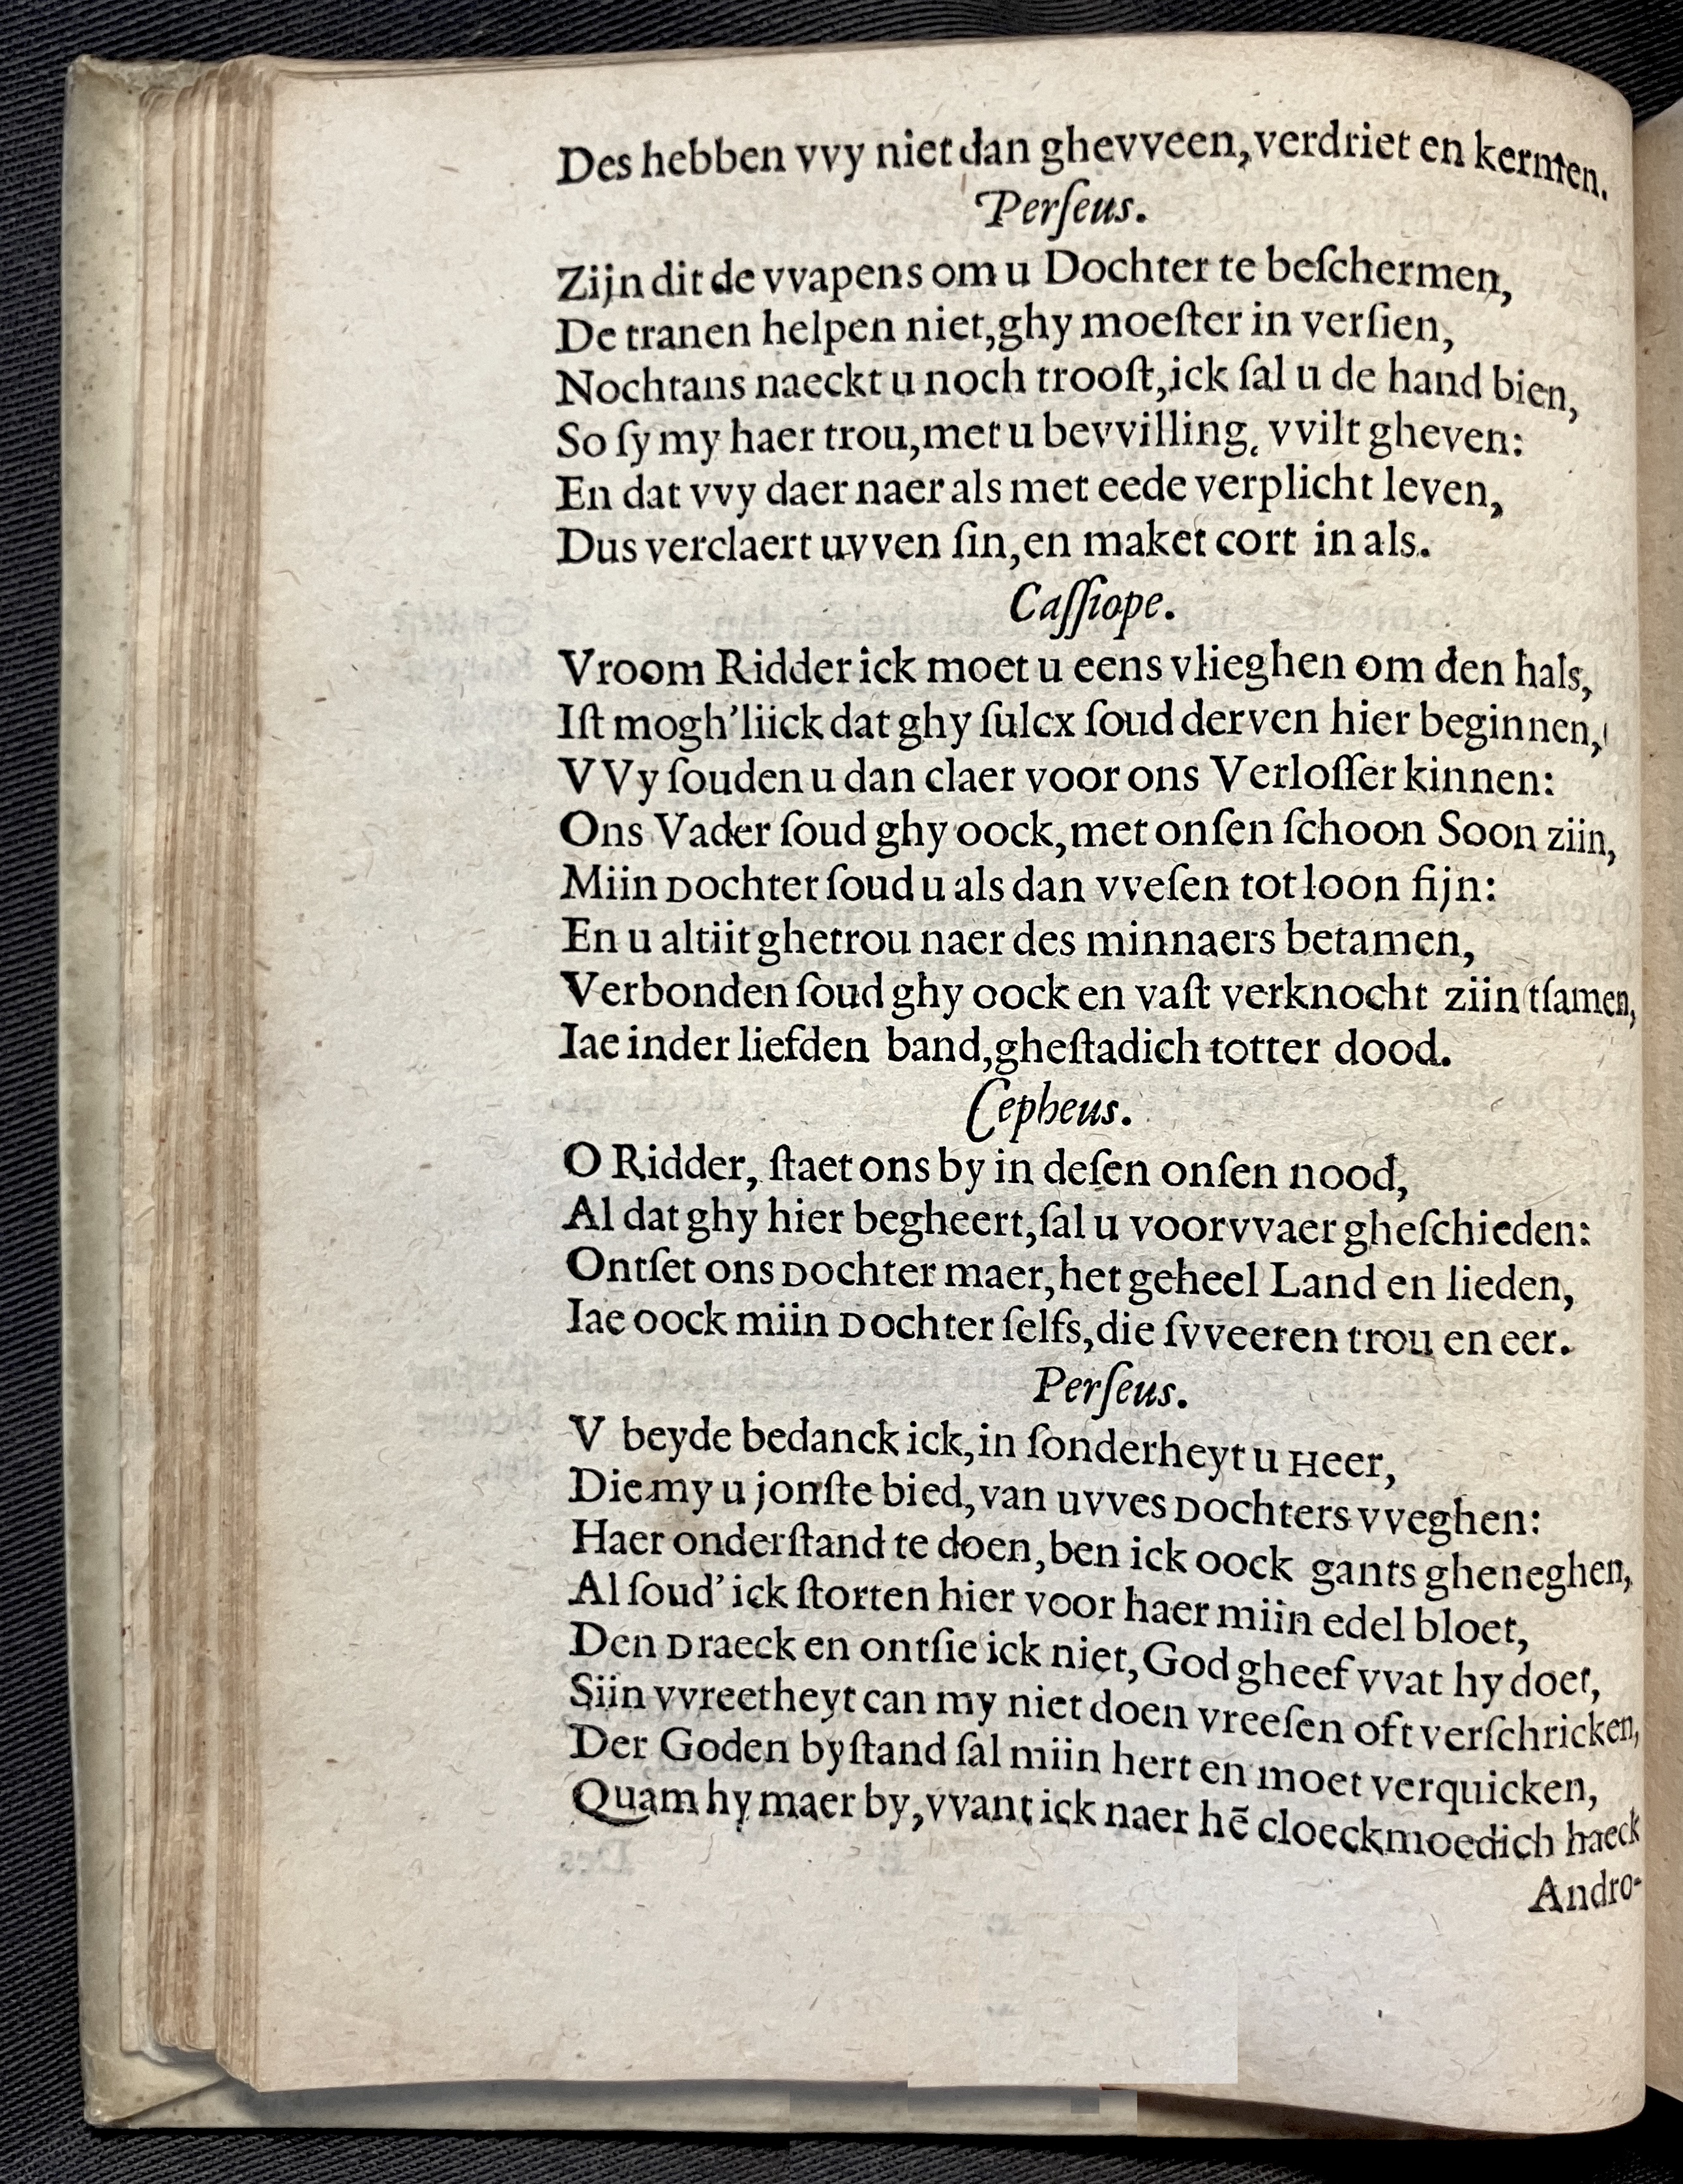 Des hebben vvy niet dan ghevveen, verdriet en kermen.
Perſeus.
Zijn dit de vvapens om u Dochter te beſchermen,
De tranen helpen niet, ghy moeſter in verſien,
Nochtans naeckt u noch trooſt, ick ſal u de hand bien,
So ſy my haer trou, met u bevvilling, vvilt gheven:
En dat vvy daer naer als met eede verplicht leven,
Dus verclaert uvven ſin, en maket cort in als.
Caſſiope.
Vroom Ridder ick moet u eens vlieghen om den hals,
Iſt mogh'liick dat ghy ſulcx ſoud derven hier beginnen,
VVy ſouden u dan claer voor ons Verloſſer kinnen:
Ons Vader ſoud ghy oock, met onſen ſchoon Soon ziin,
Miin Dochter ſoud u als dan vveſen tot loon fijn:
En u altiit ghetrou naer des minnaers betamen,
Verbonden ſoud ghy oock en vaſt verknocht ziin tſamen,
Iae inder liefden band, gheſtadich totter dood.
Cepheus.
O Ridder, ſtaet ons by in deſen onſen nood,
Al dat ghy hier begheert, ſal u voorvvaer gheſchieden:
Ontſet ons Dochter maer, het geheel Land en lieden,
Iae oock miin Dochter ſelfs, die ſvveeren trou en eer.
Perſeus.
V beyde bedanck ick, in ſonderheyt u Heer,
Die my u jonſte bied, van uvves Dochters vveghen:
Haer onderſtand te doen, ben ick oock gants gheneghen,
Al ſoud' ick ſtorten hier voor haer miin edel bloet,
Den Draeck en ontſie ick niet, God gheef vvat hy doet,
Siin vvreetheyt can my niet doen vreeſen oft verſchricken,
Der Goden byſtand ſal miin hert en moet verquicken,
Quam hy maer by, vvant ick naer hẽ cloeckmoedich haeck
Andro-